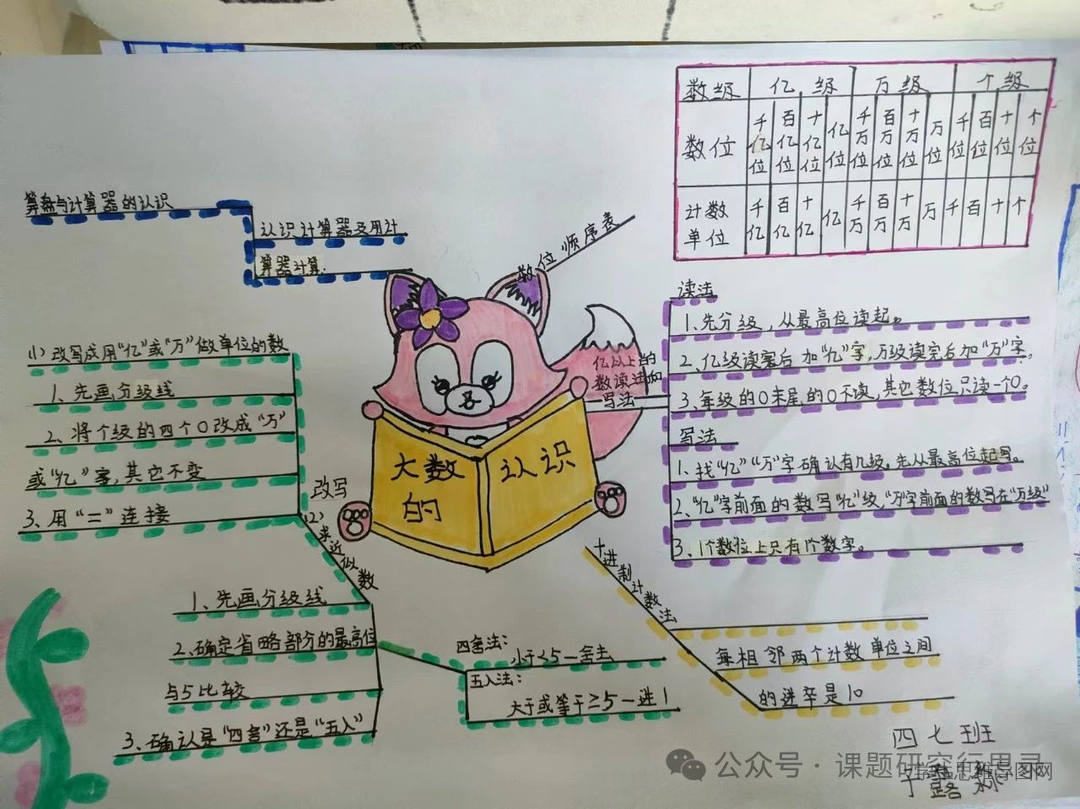 数级 亿 级 万 级 个 级
数位 千亿位 百亿位 十亿位 亿位 千万位 百万位 十万位 万位 千位 百位 十位 个位
计数单位 千亿 百亿 十亿 亿 千万 百万 十万 万 千 百 十 个
算盘与计算器的认识
认识计算器及用计
算器计算.
数位顺序表
读法
1、先分级,从最高位读起。
2、亿级读完后加“亿”字,万级读完后加“万”字。
3、每级的0末尾的0不读,其它数位只读一个0。
亿以上的
数读法和
写法
写法
1、找“亿”“万”字确认有几级。先从最高位起写。
2、“亿”字前面的数写“亿”级,“万”字前面的数写在“万级”
3、1个数位上只有1个数字。
大数的
认识
(1)改写成用“亿”或“万”做单位的数
1、先画分级线
2、将个级的四个0改成“万”
或“亿”字,其它不变
3、用“=”连接
改写
(2)求近似数
1、先画分级线
2、确定省略部分的最高位
与5比较
3、确认是“四舍”还是“五入”
四舍法:
小于<5一舍去
五入法:
大于或等于≥5一进1
十进制计数法
每相邻两个计数单位之间
的进率是10
四七班
公众号·课题研究行思录